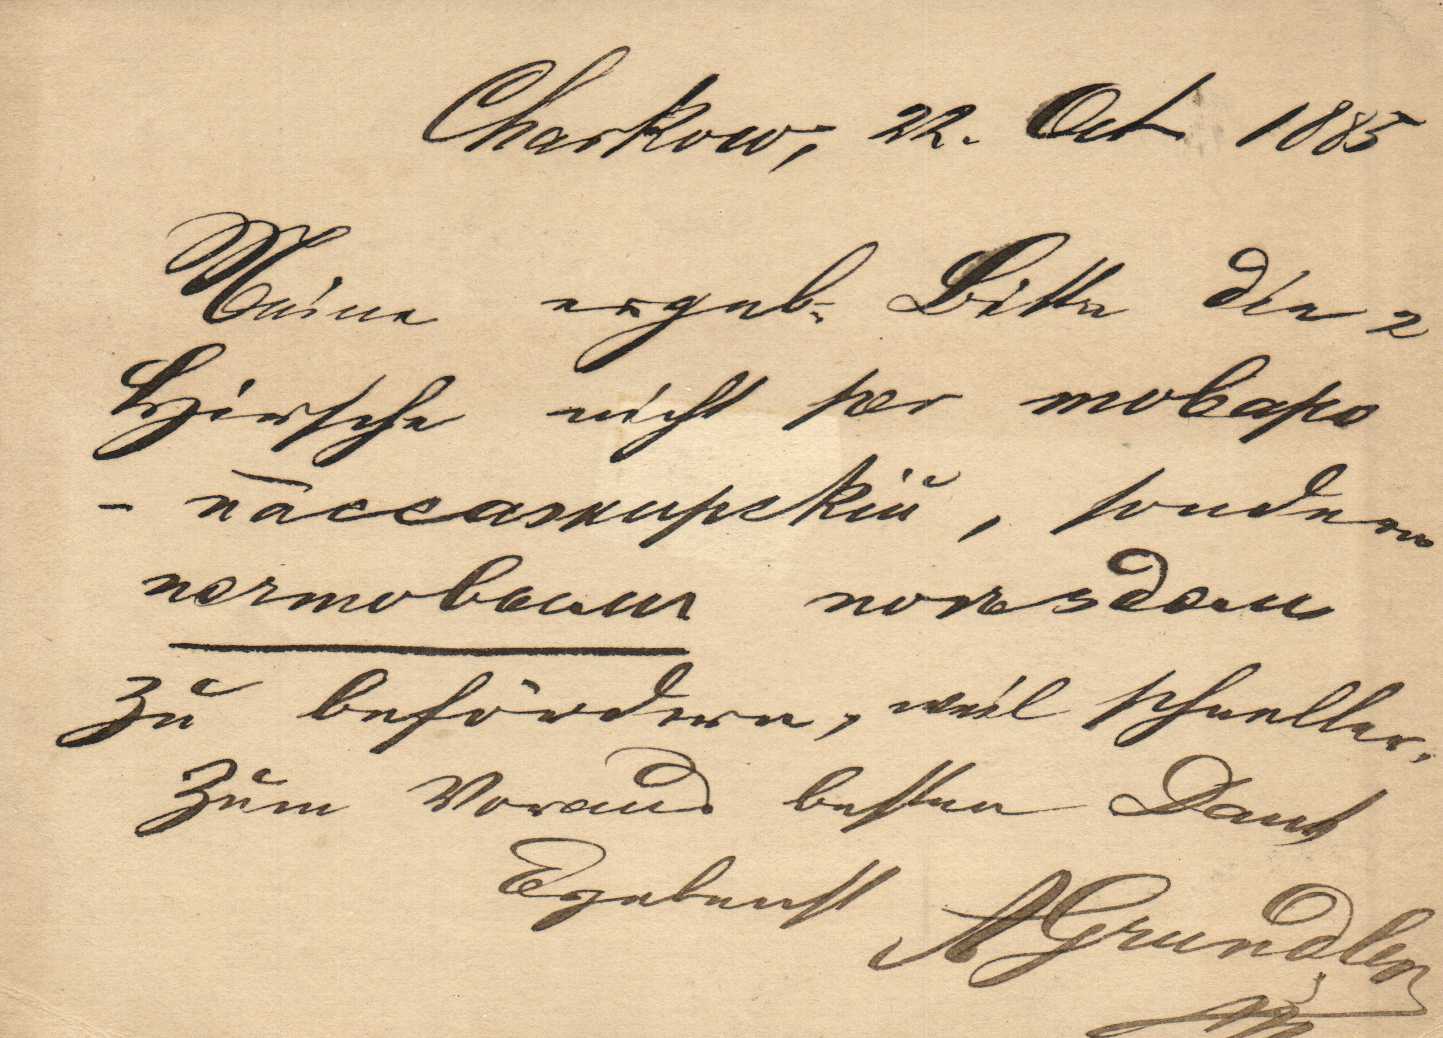 Charkow, 22. Oct 1885
Meine ergeb. Bitte die 2
Hirsche nicht per товаро
- пассажирскій, sondern
почтовым поѣздом
zu befördern, weil schneller.
Zum Voraus besten Dank
Ergebenst AGrundler